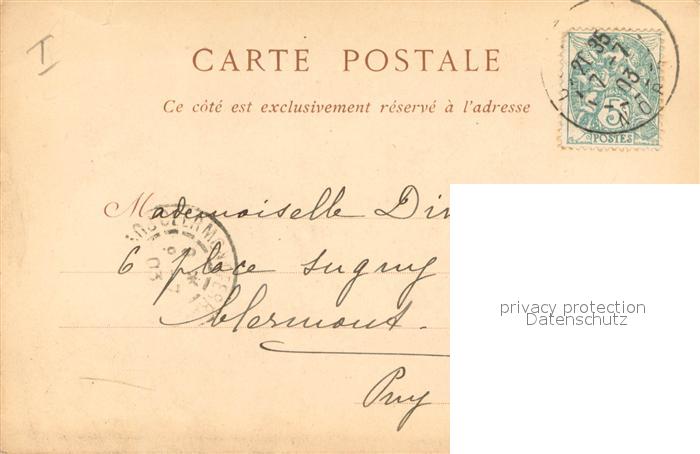 I
CARTE POSTALE
Ce côté est exclusivement réservé à l'adresse
5
POSTES
Mademoiselle
6 place
Clermont
Puy
privacy protection
Datenschutz